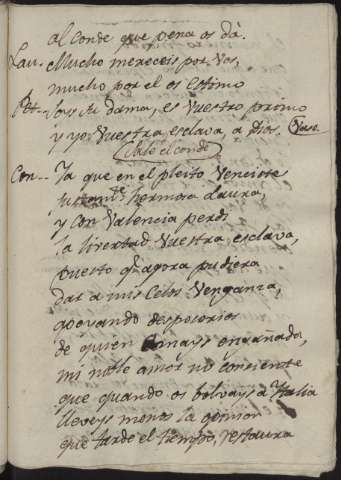 al Conde que pena os dà.
Lau.. Mucho mereceis por Vos,
mucho por el os estimo
Pet.. soys su dama, es Vuestro primo
y yo Vuestra esclava, a Dios. Vase.
Sale el Conde
Con... Ya que en el pleito Venciste
hermosa Laura,
y con Valencia perdi
la libertad Vuestra esclava,
puesto q agora pudiera
dar a mis Celos Venganza,
apoyando desposorios
de quien amays engañada,
mi noble amor no consiente
que quando os bolvays a Italia
lleveys menos la opinion
que tarde el tiempo restaura